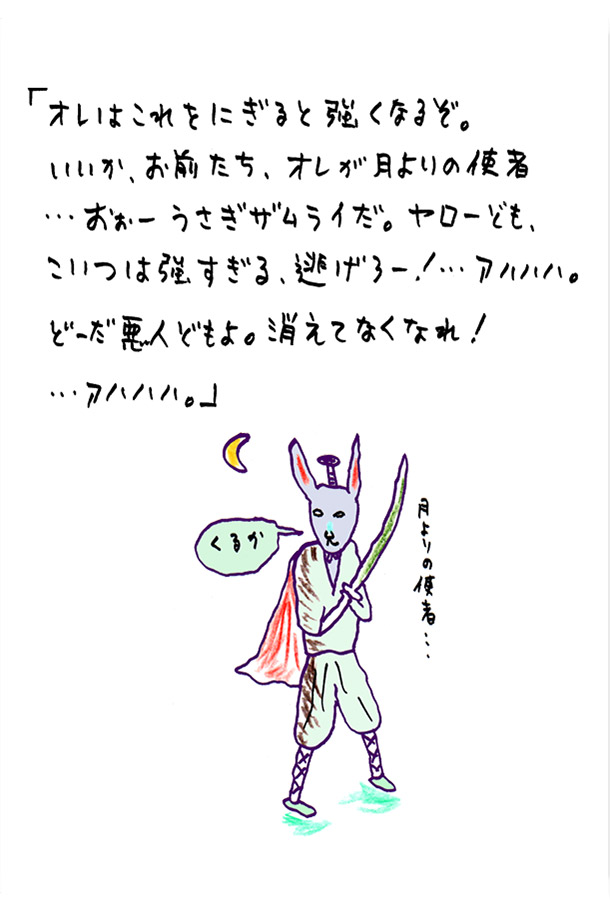 「オレはこれをにぎると強くなるぞ。
いいか、お前たち、オレが月よりの使者
…おぉーうさぎザムライだ。ヤローども、
こいつは強すぎる、逃げろー!…アハハハ。
どーだ悪人どもよ。消えてなくなれ!
…アハハハ。」
くるか
月よりの使者…